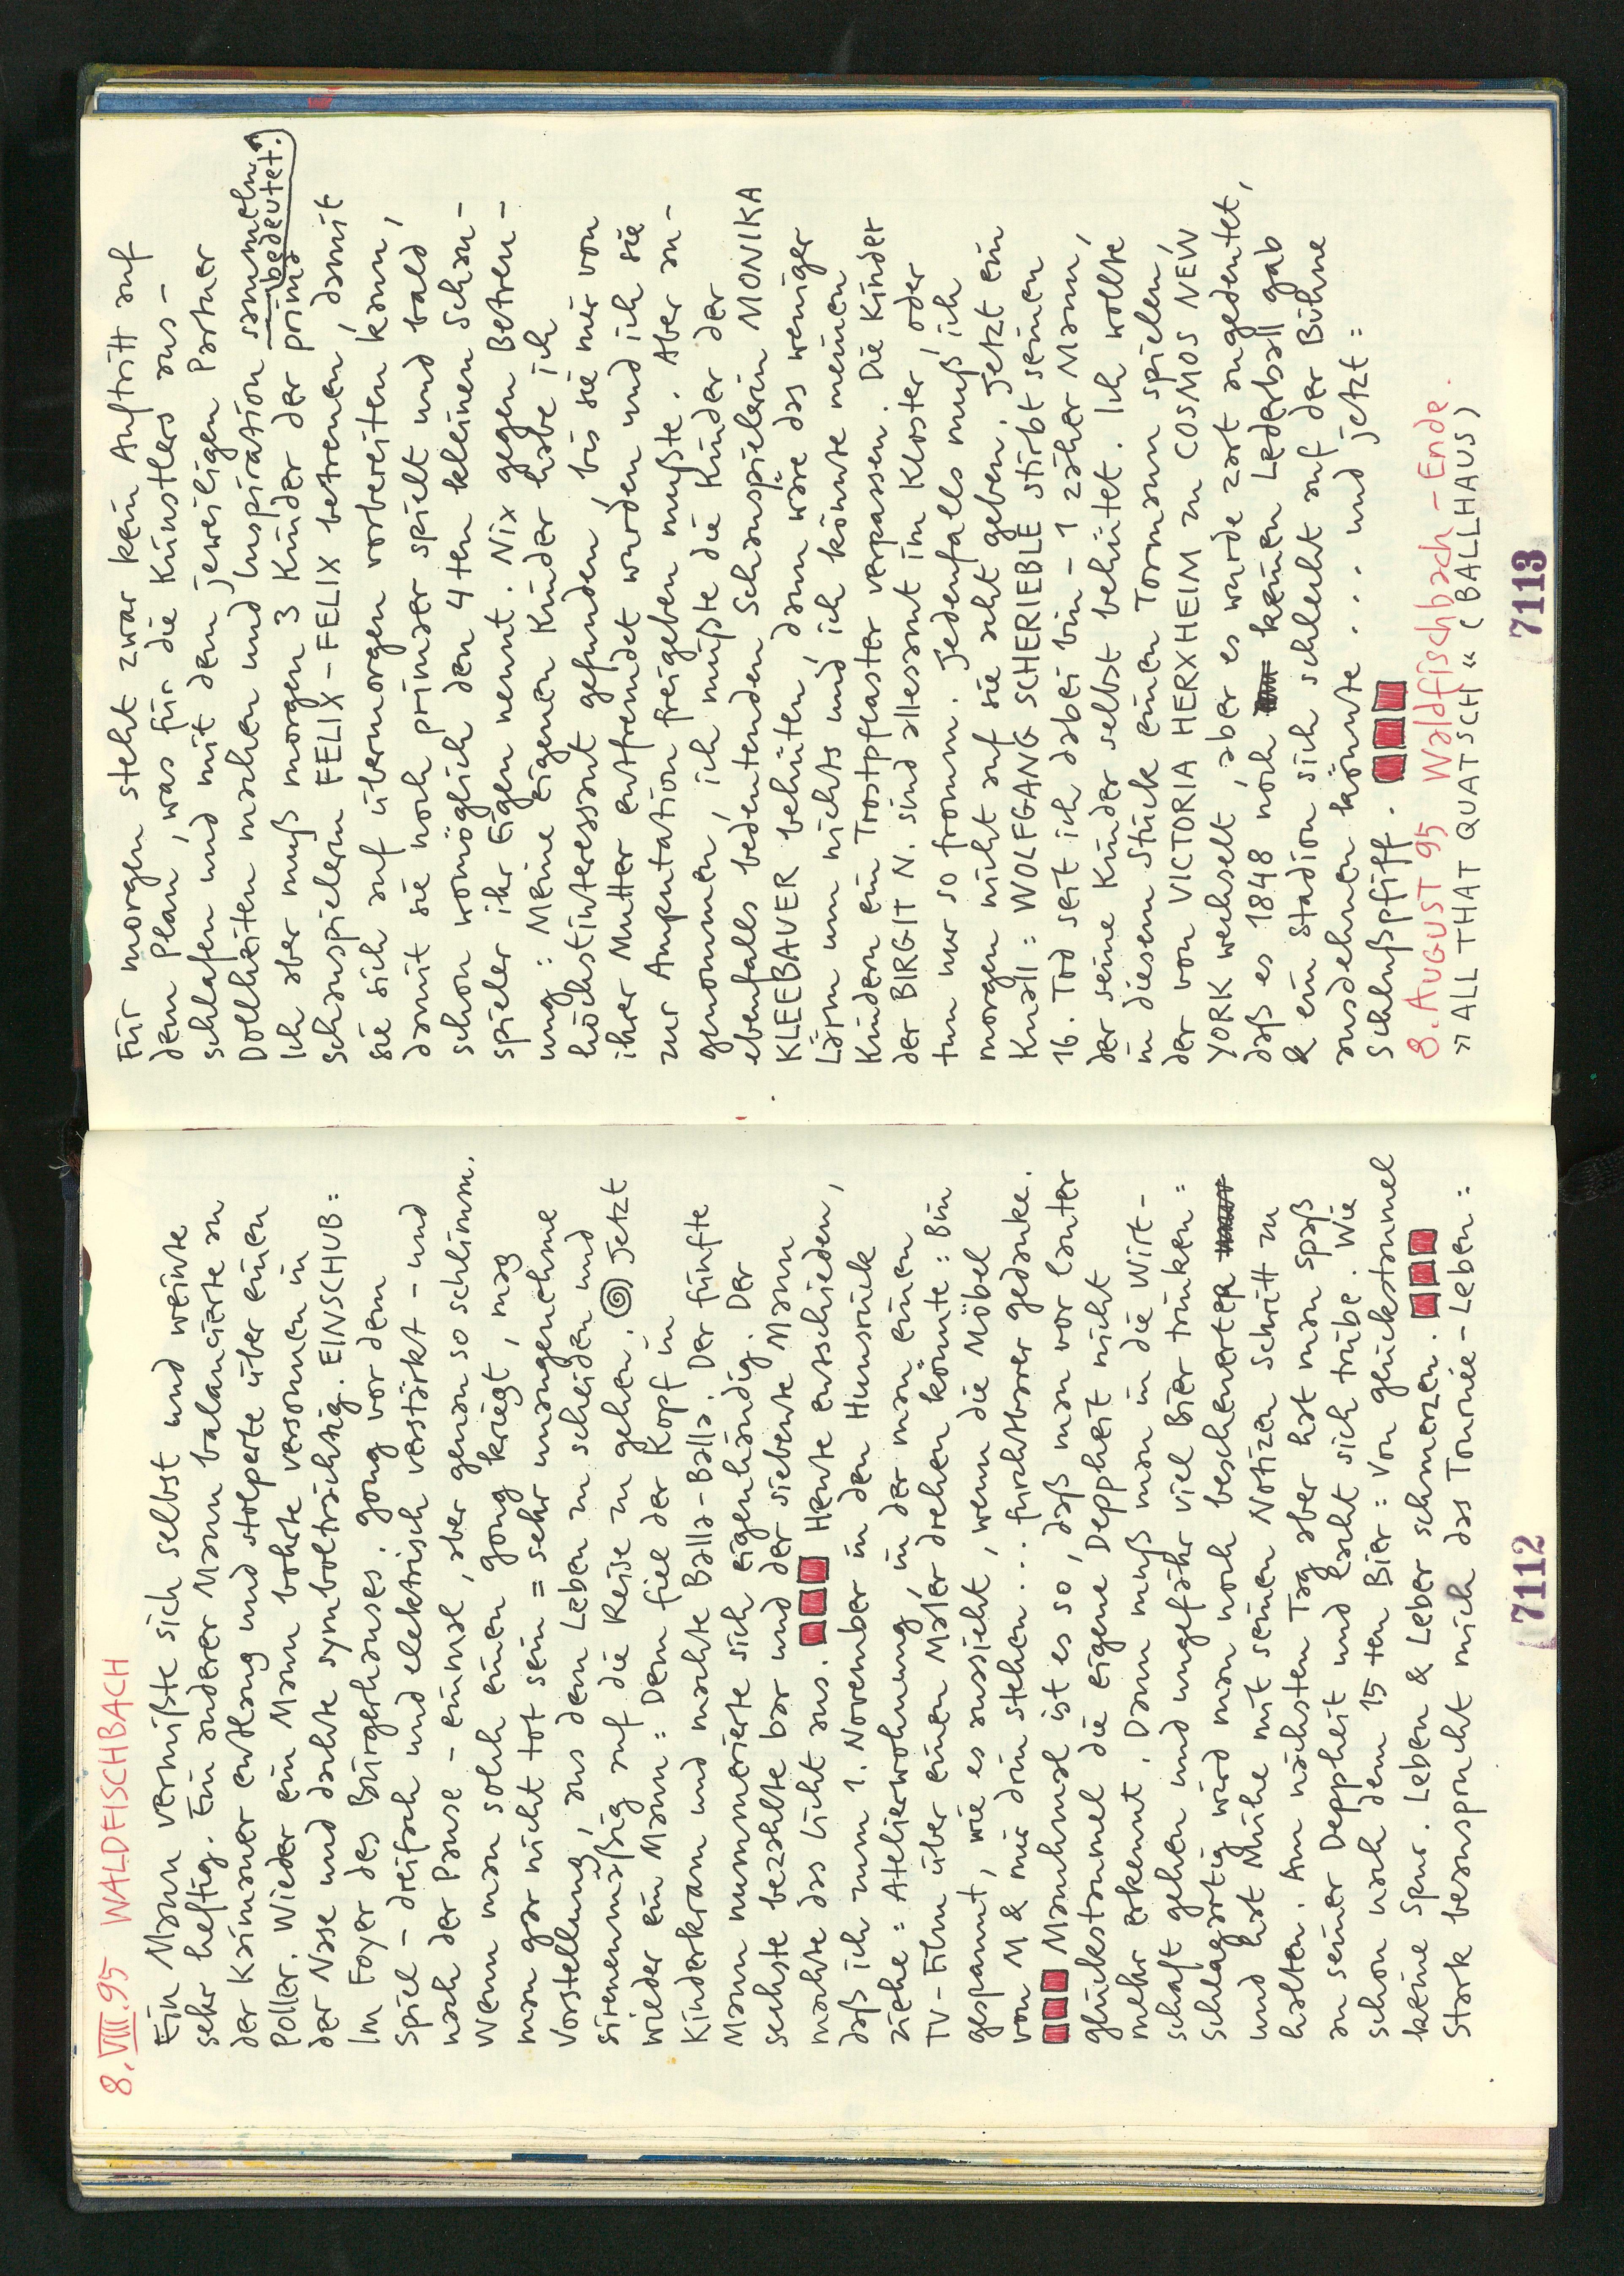 8. VIII. 95 WALDFISCHBACH
Ein Mann vermißte sich selbst und weinte
sehr heftig. Ein anderer Mann balancierte an
der Kaimauer entlang und stolperte über einen
Poller. Wieder ein Mann bohrte versonnen in
der Nase und dachte symbolträchtig. EINSCHUB:
Im Foyer des Bürgerhauses. Gong vor dem
Spiel - dreifach und elektrisch verstärkt - und
nach der Pause - einmal, aber genau so schlimm.
Wenn man solch einen Gong kriegt, mag
man gar nicht tot sein = sehr unangenehme
Vorstellung, aus dem Leben zu scheiden und
sirenenmäßig auf die Reise zu gehen. Jetzt
wieder ein Mann: Dem fiel der Kopf in
Kinderkram und machte Balla-Balla. Der fünfte
Mann nummerierte sich eigenhändig. Der
sechste bezahlte bar und der siebente Mann
machte das Licht aus. Heute entschieden,
daß ich zum 1. November in den Hunsrück
ziehe: Atelierwohnung, in der man einen
TV-Film über einen Maler drehen könnte: Bin
gespannt, wie es aussieht, wenn die Möbel
von M & mir drin stehen... furchtbarer Gedanke.
Manchmal ist es so, daß man vor lauter
Glückstaumel die eigene Deppheit nicht
mehr erkennt. Dann muß man in die Wirt-
schaft gehen und ungefähr viel Bier trinken:
Schlagartig wird man noch bescheuerter
und hat Mühe mit seinen Notizen Schritt zu
halten. Am nächsten Tag aber hat man Spaß
an seiner Deppheit und lacht sich trübe. Wie
schon nach dem 15ten Bier: Von Glückstaumel
keine Spur. Leben & Leber schmerzen.
Stark beansprucht mich das Tournée-Leben:
7112
Für morgen steht zwar kein Auftritt auf
dem Plan, was für die Künstlers aus-
schlafen und mit dem jeweiligen Partner
Dollheiten machen und Inspiration sammeln
bedeutet.
Ich aber muß morgen 3 Kinder der prima
Schauspielerin FELIX-FELIX betreuen, damit
sie sich auf übermorgen vorbereiten kann,
damit sie noch primaer spielt und bald
schon womöglich den 4ten kleinen Schau-
spieler ihr Eigen nennt. Nix gegen Betreu-
ung: Meine eigenen Kinder habe ich
höchstinteressant gefunden, bis sie mir von
ihrer Mutter entfremdet wurden und ich sie
zur Amputation freigeben mußte. Aber an-
genommen, ich müßte die Kinder der
ebenfalls bedeutenden Schauspielerin MONIKA
KLEEBAUER behüten, dann wäre das weniger
Lärm um nichts und ich könnte meinen
Kindern ein Trostpflaster verpassen. Die Kinder
der BIRGIT N. sind allesamt im Kloster, oder
tun nur so fromm. Jedenfalls muß ich
morgen nicht auf sie acht geben. Jetzt ein
Knall: WOLFGANG SCHERIEBLE stirbt seinen
16. Tod seit ich dabei bin - 1 zäher Mann,
der seine Kinder selbst behütet. Ich wollte
in diesem Stück einen Tormann spielen,
der von VICTORIA HERXHEIM zu COSMOS NEW
YORK wechselt, aber es wurde zart angedeutet,
daß es 1848 noch keinen Lederball gab
& ein Stadion sich schlecht auf der Bühne
ausdehnen könnte... und jetzt:
Schlußpfiff.
8. AUGUST 95 Waldfischbach - Ende.
» ALL THAT QUATSCH « (BALLHAUS)
7113